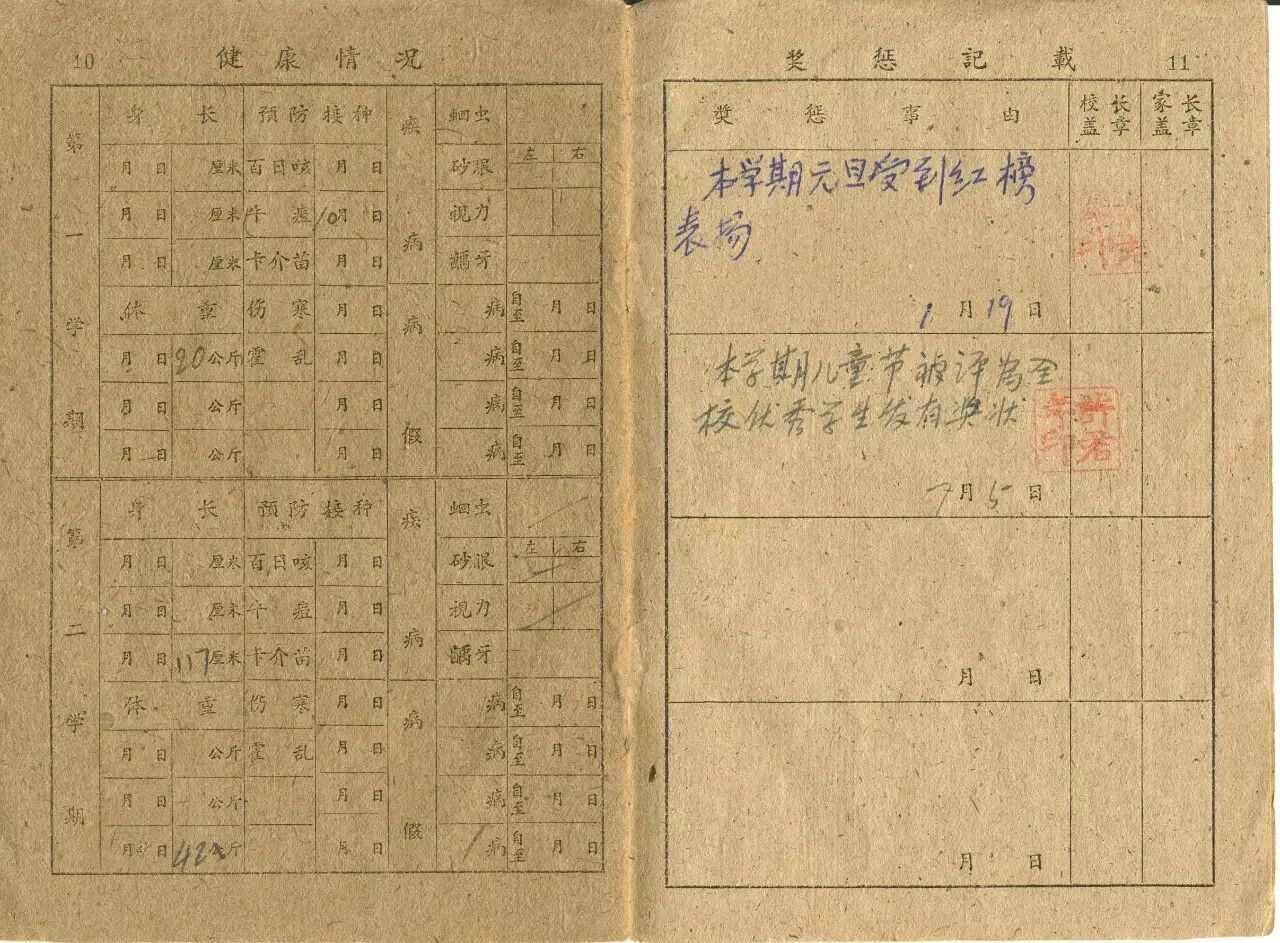 10 健康情况
第一学期
身长 预防接种 疾病 蛔虫
月 日 厘米 百日咳 月 日 砂眼 左 右
月 日 厘米 牛痘 10月 日 視力
月 日 厘米 卡介苗 月 日 齲牙
体重 伤寒 月 日 病假 病 自至 月 日
月 日 20公斤 霍乱 月 日 病 自至 月 日
月 日 公斤 月 日 病 自至 月 日
月 日 公斤 月 日 病 自至 月 日
第二学期
身长 预防接种 疾病 蛔虫
月 日 厘米 百日咳 月 日 砂眼 左 右
月 日 厘米 牛痘 月 日 視力
月 日 117厘米 卡介苗 月 日 齲牙
体重 伤寒 月 日 病假 病 自至 月 日
月 日 公斤 霍乱 月 日 病 自至 月 日
月 日 公斤 月 日 病 自至 月 日
月 日 公斤 月 日 病 自至 月 日
奖惩記載 11
奬惩事由 校长盖章 家长盖章
本学期元旦受到红榜
表扬
1月19日
本学期儿童节被评为全
校优秀学生发有奖状
许君
印
7月5日
月 日
月 日